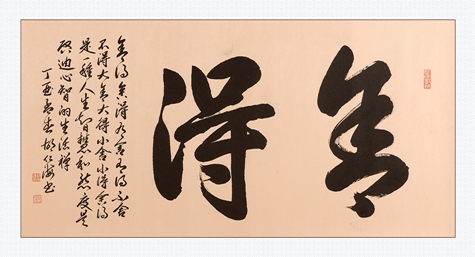 舍得
舍得舍得有舍有得不舍
不得大舍大得小舍小得舍得
是一種人生智慧和態度是
啓迪心智的生活禅
丁酉春书